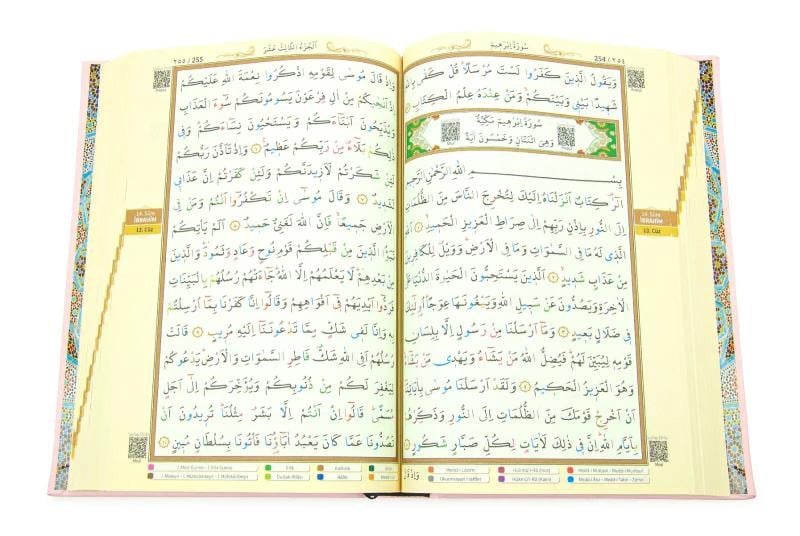 سُورَةُ إِبْرٰهِيمَ
254 / ٢٥٤
وَيَقُولُ الَّذِينَ كَفَرُوا لَسْتَ مُرْسَلًا قُلْ كَفٰى بِاللّٰهِ
شَهِيدًا بَيْنِي وَبَيْنَكُمْ وَمَنْ عِنْدَهُ عِلْمُ الْكِتَابِ
سُورَةُ إِبْرٰهِيمَ مَكِّيَّةٌ
وَهِيَ اثْنَتَانِ وَخَمْسُونَ اٰيَةً
بِسْمِ اللّٰهِ الرَّحْمٰنِ الرَّحِيمِ
الٓرٰ كِتَابٌ اَنْزَلْنَاهُ اِلَيْكَ لِتُخْرِجَ النَّاسَ مِنَ الظُّلُمَاتِ
اِلَى النُّورِ بِاِذْنِ رَبِّهِمْ اِلٰى صِرَاطِ الْعَزِيزِ الْحَمِيدِ ١ اَللّٰهِ
الَّذِي لَهُ مَا فِي السَّمٰوَاتِ وَمَا فِي الْاَرْضِ وَوَيْلٌ لِلْكَافِرِينَ
مِنْ عَذَابٍ شَدِيدٍ ٢ اَلَّذِينَ يَسْتَحِبُّونَ الْحَيٰوةَ الدُّنْيَا عَلَى
الْاٰخِرَةِ وَيَصُدُّونَ عَنْ سَبِيلِ اللّٰهِ وَيَبْغُونَهَا عِوَجًا اُولٰٓئِكَ
فِي ضَلَالٍ بَعِيدٍ ٣ وَمَا اَرْسَلْنَا مِنْ رَسُولٍ اِلَّا بِلِسَانِ
قَوْمِهِ لِيُبَيِّنَ لَهُمْ فَيُضِلُّ اللّٰهُ مَنْ يَشَاءُ وَيَهْدِي مَنْ يَشَاءُ
وَهُوَ الْعَزِيزُ الْحَكِيمُ ٤ وَلَقَدْ اَرْسَلْنَا مُوسٰى بِاٰيَاتِنَا
اَنْ اَخْرِجْ قَوْمَكَ مِنَ الظُّلُمَاتِ اِلَى النُّورِ وَذَكِّرْهُمْ
بِاَيَّامِ اللّٰهِ اِنَّ فِي ذٰلِكَ لَاٰيَاتٍ لِكُلِّ صَبَّارٍ شَكُورٍ ٥
وَاِذْ قَالَ
14. Sûre
İBRAHİM
13. Cüz
اَلْجُزْءُ الثَّالِثَ عَشَرَ
٢٥٥ / 255
وَاِذْ قَالَ مُوسٰى لِقَوْمِهِ اذْكُرُوا نِعْمَةَ اللّٰهِ عَلَيْكُمْ
اِذْ اَنْجٰيكُمْ مِنْ اٰلِ فِرْعَوْنَ يَسُومُونَكُمْ سُوءَ الْعَذَابِ
وَيُذَبِّحُونَ اَبْنَاءَكُمْ وَيَسْتَحْيُونَ نِسَاءَكُمْ وَفِي
ذٰلِكُمْ بَلَاءٌ مِنْ رَبِّكُمْ عَظِيمٌ ٦ وَاِذْ تَاَذَّنَ رَبُّكُمْ
لَئِنْ شَكَرْتُمْ لَاَزِيدَنَّكُمْ وَلَئِنْ كَفَرْتُمْ اِنَّ عَذَابِي
لَشَدِيدٌ ٧ وَقَالَ مُوسٰى اِنْ تَكْفُرُوا اَنْتُمْ وَمَنْ فِي
الْاَرْضِ جَمِيعًا فَاِنَّ اللّٰهَ لَغَنِيٌّ حَمِيدٌ ٨ اَلَمْ يَاْتِكُمْ
نَبَؤُا الَّذِينَ مِنْ قَبْلِكُمْ قَوْمِ نُوحٍ وَعَادٍ وَثَمُودَ وَالَّذِينَ
مِنْ بَعْدِهِمْ لَا يَعْلَمُهُمْ اِلَّا اللّٰهُ جَاءَتْهُمْ رُسُلُهُمْ بِالْبَيِّنَاتِ
فَرَدُّوا اَيْدِيَهُمْ فِي اَفْوَاهِهِمْ وَقَالُوا اِنَّا كَفَرْنَا بِمَا اُرْسِلْتُمْ
بِهِ وَاِنَّا لَفِي شَكٍّ مِمَّا تَدْعُونَنَا اِلَيْهِ مُرِيبٍ ٩ قَالَتْ
رُسُلُهُمْ اَفِي اللّٰهِ شَكٌّ فَاطِرِ السَّمٰوَاتِ وَالْاَرْضِ يَدْعُوكُمْ
لِيَغْفِرَ لَكُمْ مِنْ ذُنُوبِكُمْ وَيُؤَخِّرَكُمْ اِلٰى اَجَلٍ
مُسَمًّى قَالُوا اِنْ اَنْتُمْ اِلَّا بَشَرٌ مِثْلُنَا تُرِيدُونَ اَنْ
تَصُدُّونَا عَمَّا كَانَ يَعْبُدُ اٰبَاؤُنَا فَاْتُونَا بِسُلْطَانٍ مُبِينٍ ١٠
14. Sûre
İBRAHİM
13. Cüz